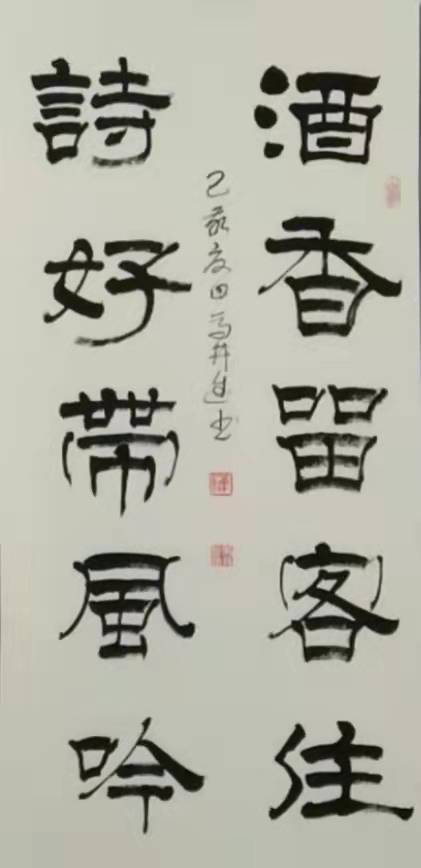 酒香留客住
詩好帶風吟
己亥夏日馬井進书